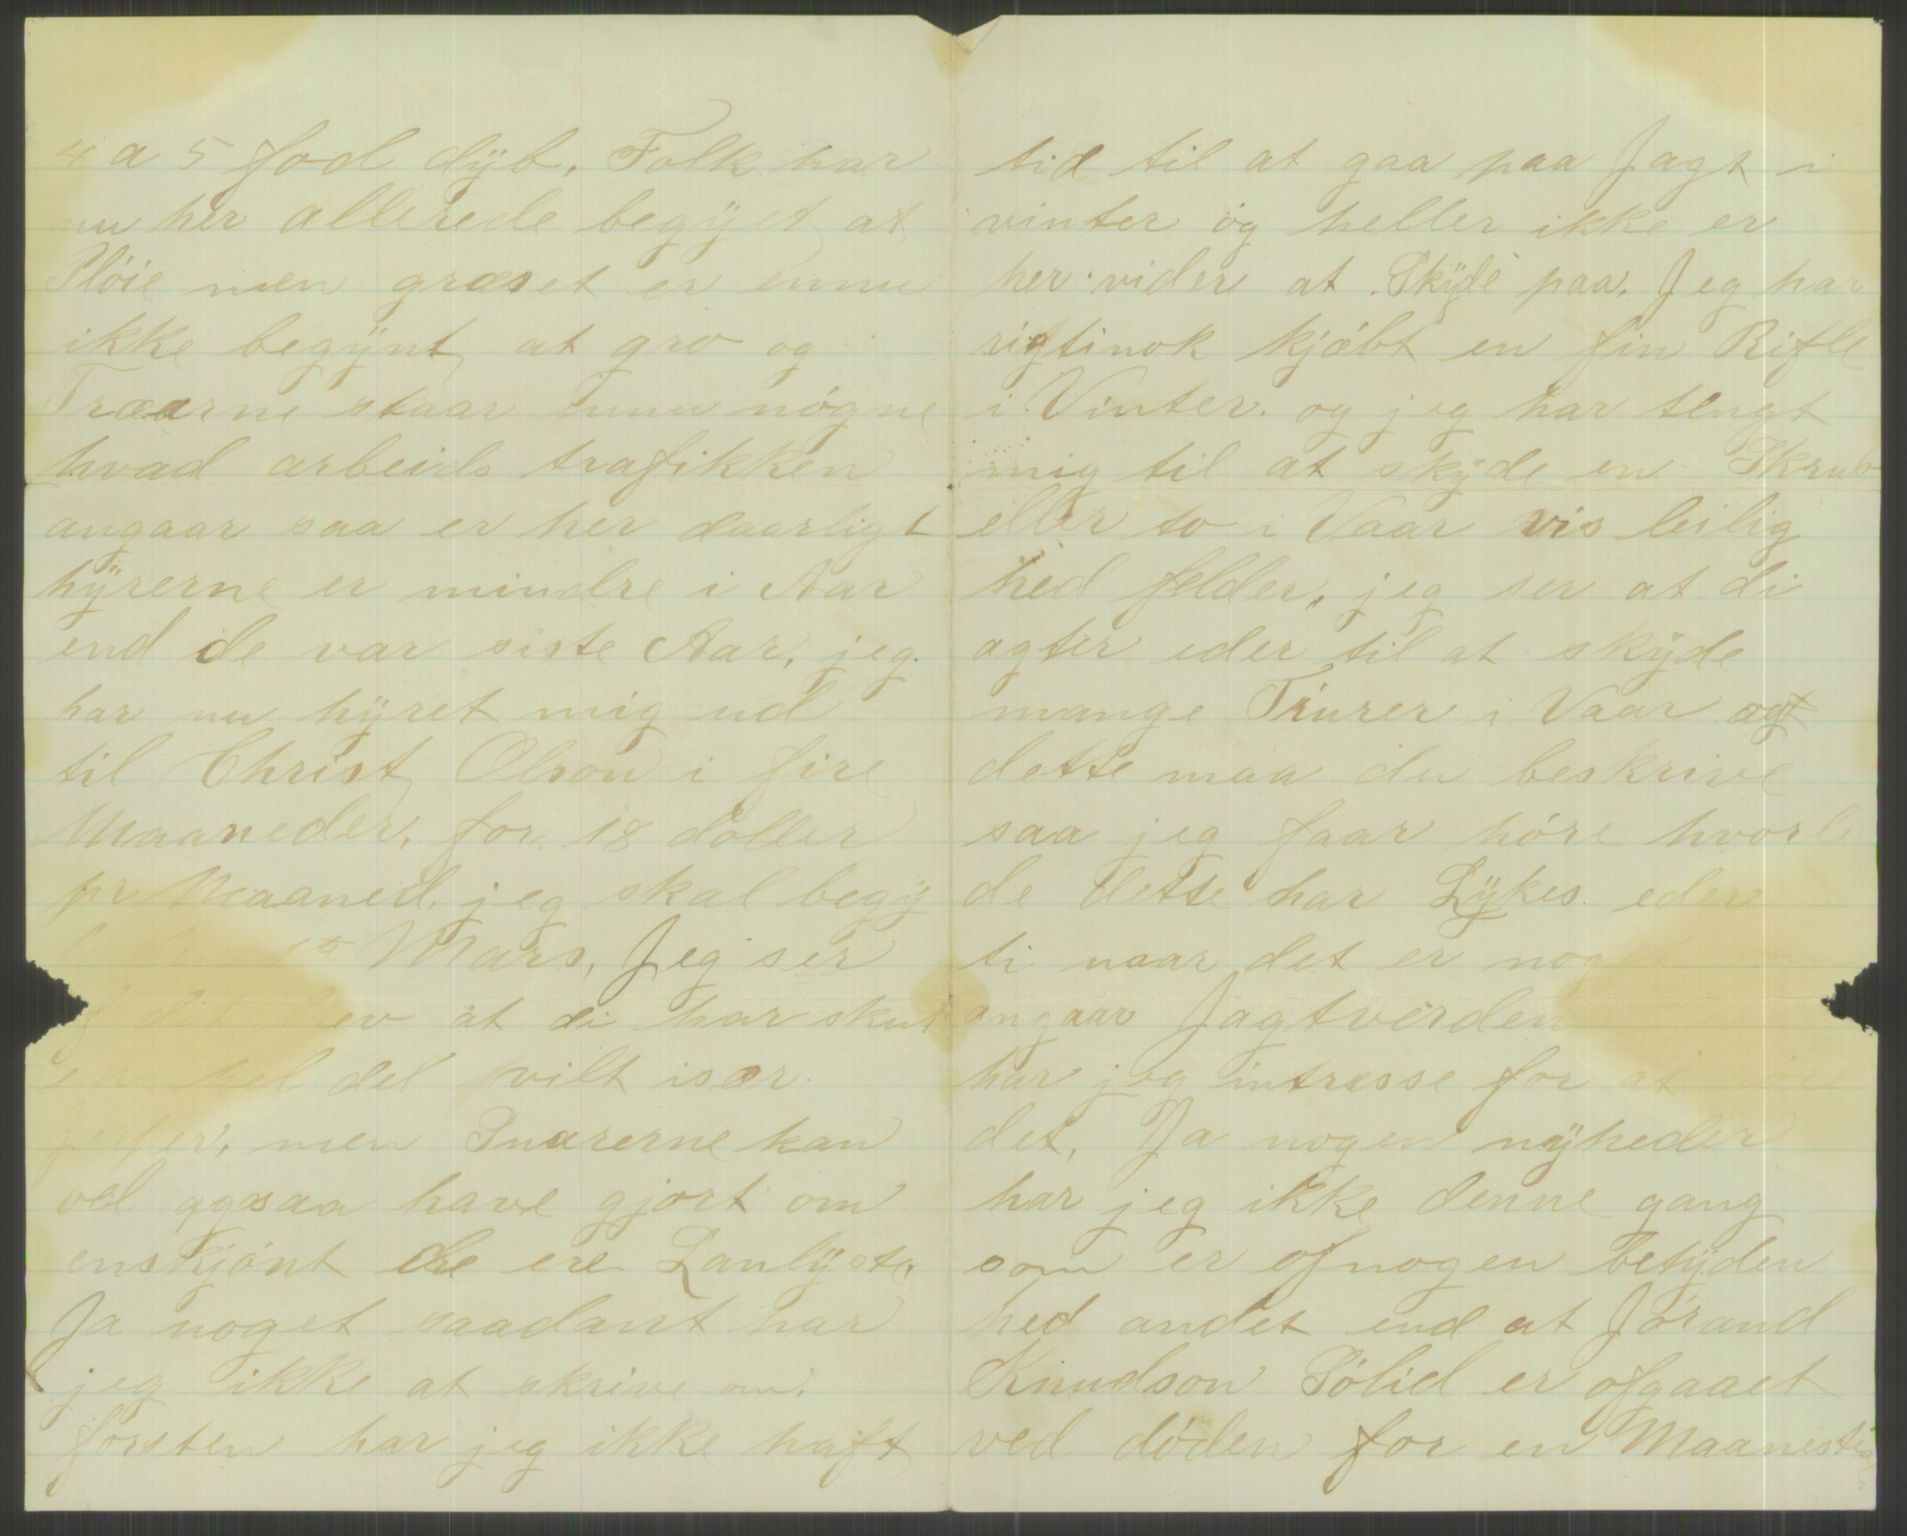 4 a 5 fod dÿb, Folk har
nu her allerede begÿet at
Plöie men græset er ennu
ikke begÿnt at gro og
Træerne staar ennu nógne
hvad arbeids trafikken
angaar saa er her daarligt
hÿrerne er mindre i Aar
end de var siste Aar, jeg
har nu hÿret mig ud
til Christ Olson i fire
Maaneder, for 18 doller
pr Maaned, jeg skal begÿ
1te Mars, Jeg ser
at di har skut
en hel del vilt især
Jerper, men Snarerne kan
vel ogsaa have gjort om
enskjónt de ere Lanlÿste,
Ja noget saadant har
jeg ikke at skrive om,
forsten har jeg ikke haft
tid til at gaa paa Jagt i
vinter og heller ikke er
her videre at Skÿde paa, Jeg har
rigtinok kjóbt en fin Rifle
i Vinter. og jeg har tengt
mig til at skÿde en Skrub
eller to i Vaar vis leilig
hed felder, jeg ser at di
agter eder til at skÿde
mange Tiurer i Vaar og
dette maa du beskrive
saa jeg faar hóre hvorle
de dette har Lÿkes eder
ti naar det er noget
angaar Jagtverden
har jeg intresse for at
det, Ja nogen nÿheder
har jeg ikke denne gang
som er of nogen betÿden
hed andet end at Jórand
Knudson Sólid er ofgaaet
ved dóden for en Maanestid